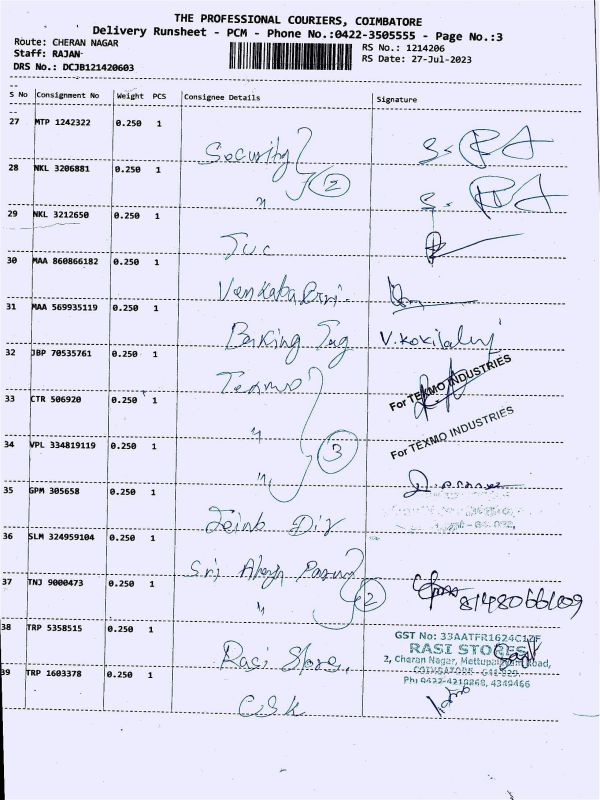 THE PROFESSIONAL COURIERS, COIMBATORE
Delivery Runsheet - PCM - Phone No.:0422-3505555 - Page No.:3
Route: CHERAN NAGAR
RS No.: 1214206
Staff: RAJAN
RS Date: 27-Jul-2023
DRS No.: DCJB121420603
S No Consignment No Weight PCS Consignee Details Signature
27 MTP 1242322 0.250 1
Security
28 NKL 3206881 0.250 1
" 2
29 NKL 3212650 0.250 1
30 MAA 860866182 0.250 1
31 MAA 569935119 0.250 1
V.Kokilaluj
32 JBP 70535761 0.250 1
Texmo
For TEXMO INDUSTRIES
33 CTR 506920 0.250 1
"
For TEXMO INDUSTRIES
34 VPL 334819119 0.250 1
" 3
35 GPM 305658 0.250 1
36 SLM 324959104 0.250 1
Sri
37 TNJ 9000473 0.250 1
" 2
38 TRP 5358515 0.250 1
GST No: 33AATFR1624C1ZF
RASI STORES
2, Cheran Nagar, Mettupalayam Road,
Rasi Store,
COIMBATORE - 641 029.
39 TRP 1603378 0.250 1
CSK